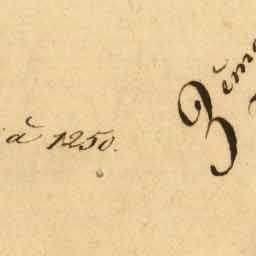 à 1250.
3ème